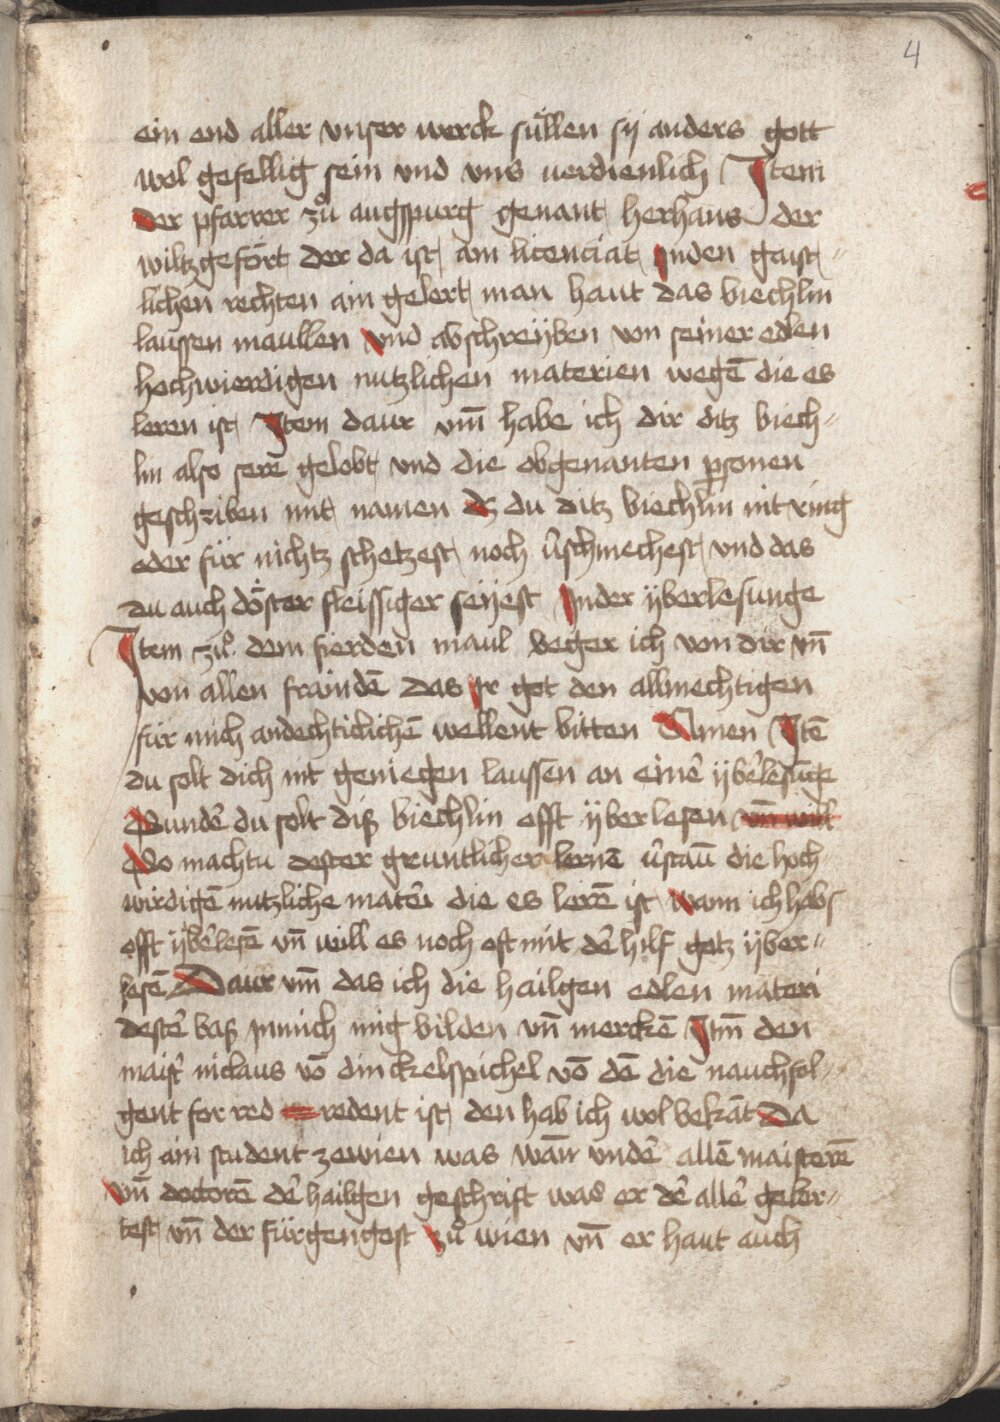 4
ein end aller vnser werck süllen sÿ anders gott
wol gefellig sein vnd vns uerdienlich Item
der pfarrer zů augspurg genant herhans der
wiltzgefört der da ist ain licenciat Inden gaist-
lichen rechten ain gelert man haut das biechlin
laussen maullen vnd abschreÿben von seiner edlen
hochwierdigen nutzlichen materien wegē die es
leren ist Item daur vm̄ habe ich dir ditz biech-
lin also sere gelobt vnd die obgenanten p̲sonen
geschriben mit namen dz du ditz biechlin nit ring
oder für nichtz schetzest noch v̄schmechest vnd das
du auch döster fleissiger seÿest Inder ÿberlesunge
Item zů dem fierden maul beger ich von dir vn̄
von allen fraindē das ir got den allmechtigen
für mich andechticlichē wellent bitten Amen Itē
du solt dich nit geniegen laussen an einē ÿbe͛lesūge
Sunde͛ du solt diß biechlin offt ÿberlesen vn̄ will
So machtu dester gruntlicher lernē v̄staū die hoch
wirdigē nutzliche mate͛i die es lerē ist wann ich habs
offt ÿbe͛lesē vn̄ will es noch oft mit de͛ hilf gotz ÿber-
lesē Daur vm̄ das ich die hailgen edlen materi
deste͛ baß in mich mig bilden vn̄ merckē Itm̄ den
maist͛ niclaus vō dinckelspichel vō dē die nauchfol-
gent for red redent ist den hab ich wol bekāt Da
ich ain student zewien was wan̄ unde͛ allē maisterē
vn̄ doctorē de͛ hailgen geschrift was er de͛ alle͛ geler-
test vn̄ der fürgengest zů wien vn̄ er haut auch